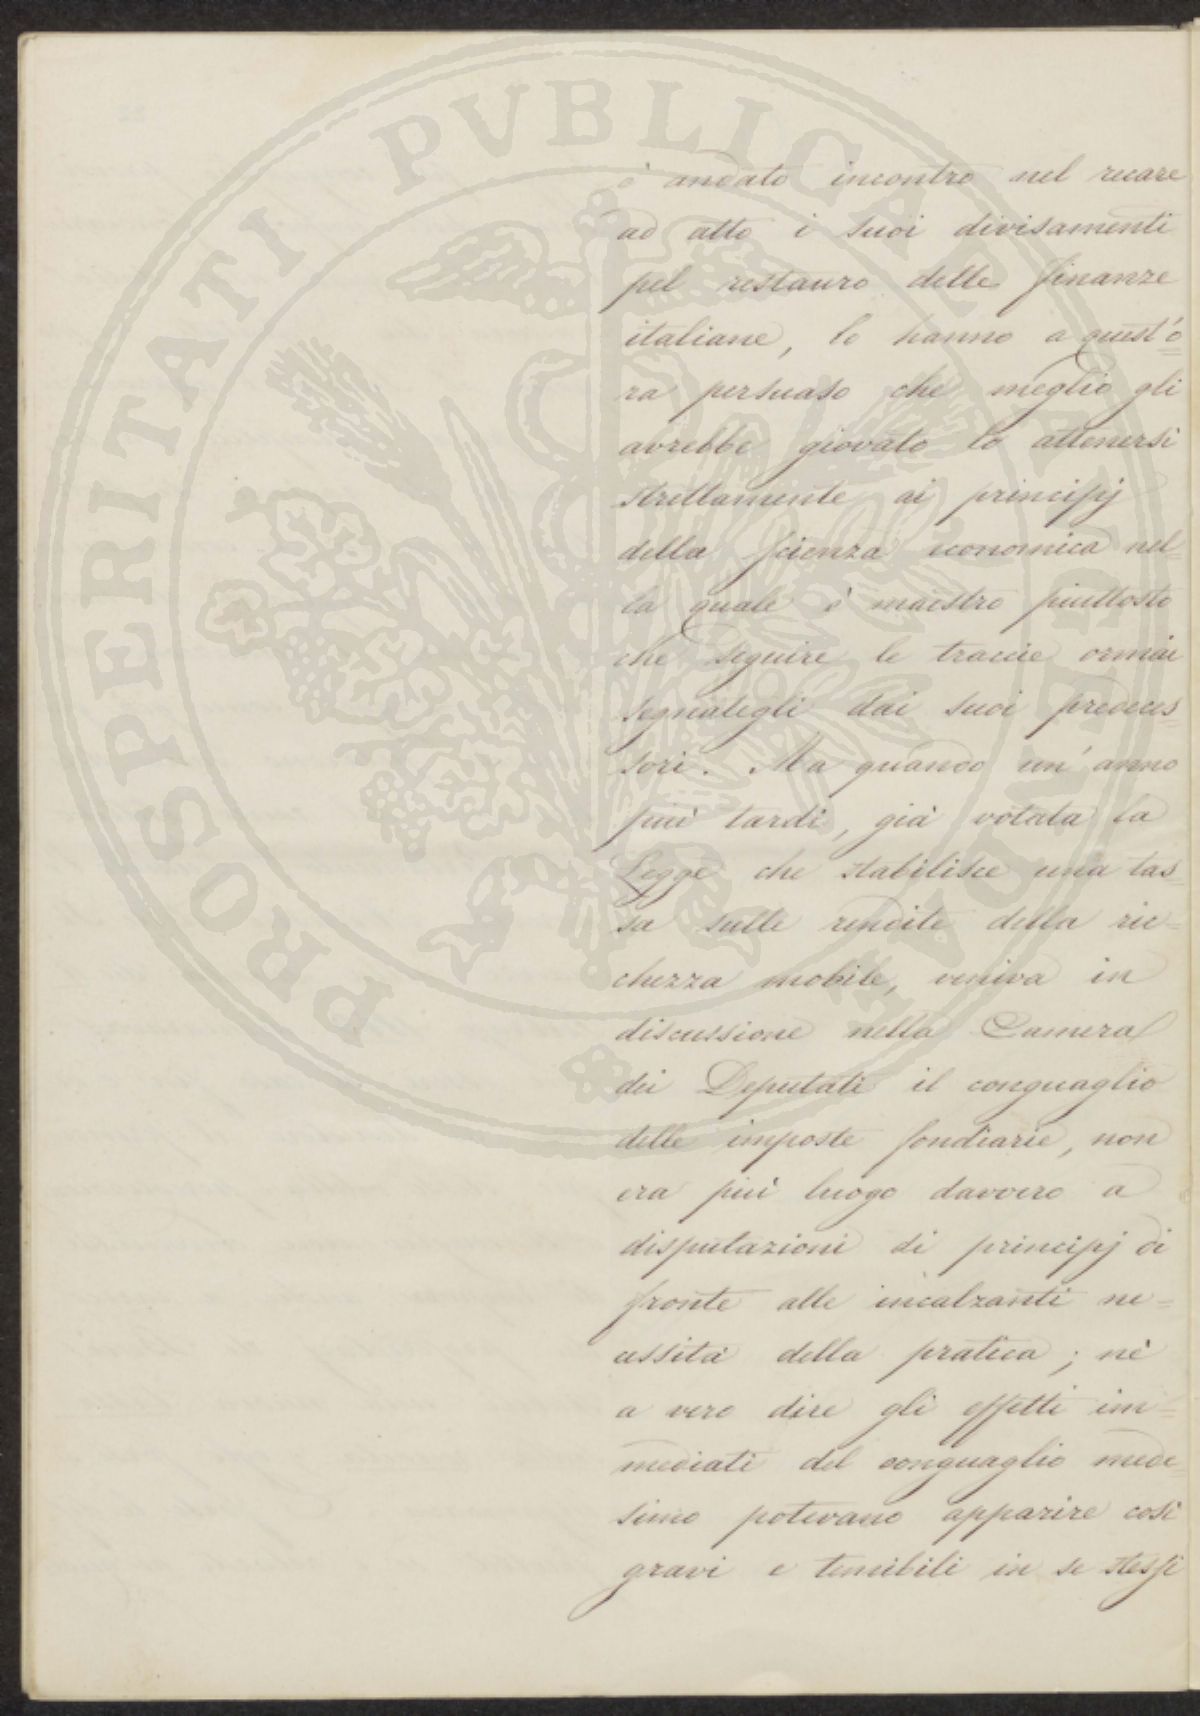 è andato incontro nel recare
ad atto i suoi divisamenti
pel restauro delle finanze
italiane, lo hanno a quest'o=
ra persuaso che meglio gli
avrebbe giovato lo attenersi
strettamente ai principj
della scienza economica nel=
la quale è maestro piuttosto
che seguire le traccie ormai
segnategli dai suoi predeces=
sori. Ma quando un'anno
più tardi, già votata la
Legge che stabilisce una tas=
sa sulle rendite della ric=
chezza mobile, veniva in
discussione nella Camera
dei Deputati il conguaglio
delle imposte fondiarie, non
era più luogo davvero a
disputazioni di principj di
fronte alle incalzanti ne=
cessità della pratica; nè
a vero dire gli effetti im=
mediati del conguaglio mede=
simo potevano apparire così
gravi e temibili in se stessi
PROSPERITATI PVBLICAE